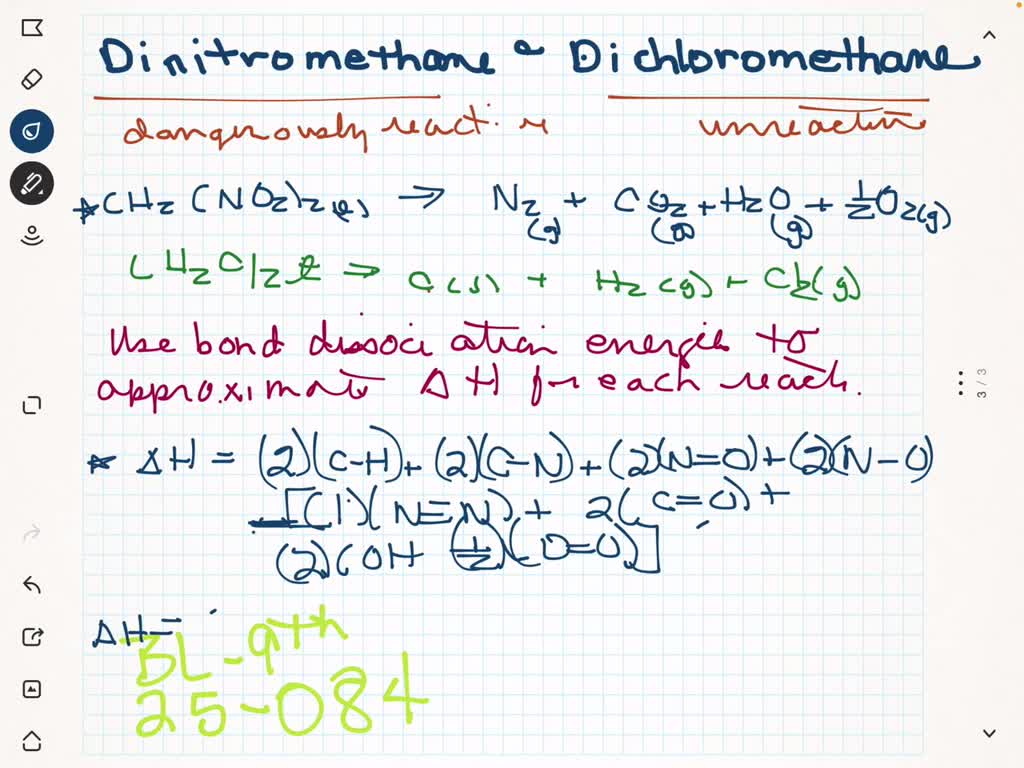 Dinitromethane & Dichloromethane
dangerously reactive unreactive
*CH2(NO2)2(l) → N2(g) + CO2(g) + H2O(g) + 1/2O2(g)
CH2Cl2 l ⇒ C(s) + H2(g) + Cl2(g)
Use bond dissociation energies to
approximate ΔH for each reach.
* ΔH = (2)(C-H) + (2)(C-N) + (2)(N=O) + (2)(N-O)
-[(1)(N≡N) + 2(C=O) +
(2)(OH (1/2)(O=O)]
ΔH =
BL-9th
25-084
3/3